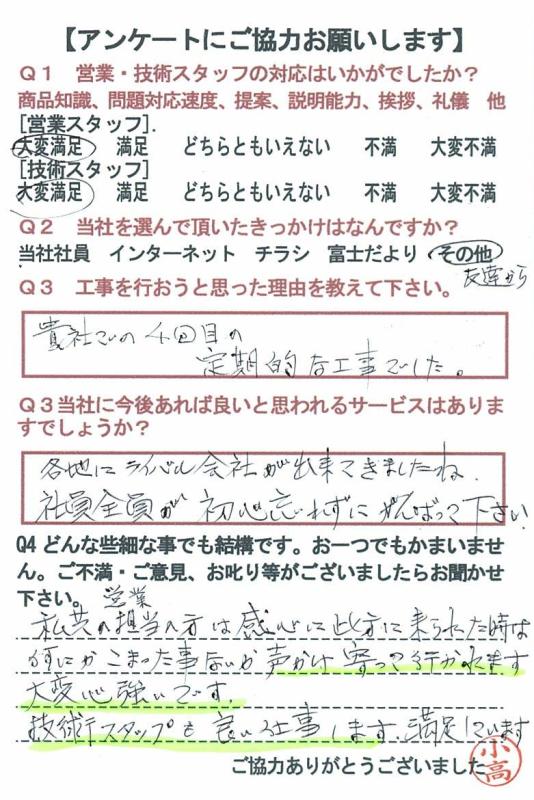 【アンケートにご協力お願いします】
Q1 営業・技術スタッフの対応はいかがでしたか?
商品知識、問題対応速度、提案、説明能力、挨拶、礼儀 他
[営業スタッフ].
大変満足 満足 どちらともいえない 不満 大変不満
[技術スタッフ]
大変満足 満足 どちらともいえない 不満 大変不満
Q2 当社を選んで頂いたきっかけはなんですか?
当社社員 インターネット チラシ 富士だより その他
友達から
Q3 工事を行おうと思った理由を教えて下さい。
貴社での4回目の
定期的な工事でした。
Q3当社に今後あれば良いと思われるサービスはありま
すでしょうか?
各地にライバル会社が出来てきましたね.
社員全員が初心忘れずにがんばって下さい
Q4 どんな些細な事でも結構です。お一つでもかまいませ
ん。ご不満・ご意見、お叱り等がございましたらお聞かせ
下さい。
営業
私共の担当の方は感心に此方に来られた時は
何にかこまった事ないか声かけ寄って行かれます
大変心強いです.
技術スタッフも良い仕事します.満足しています
ご協力ありがとうございました
小高